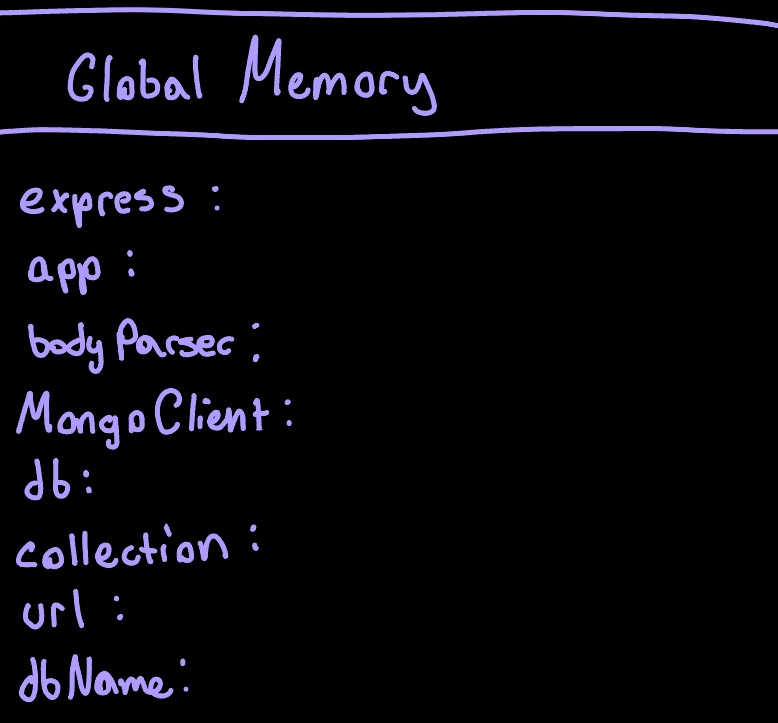 Global Memory
express :
app :
bodyParser :
MongoClient :
db :
collection :
url :
dbName :